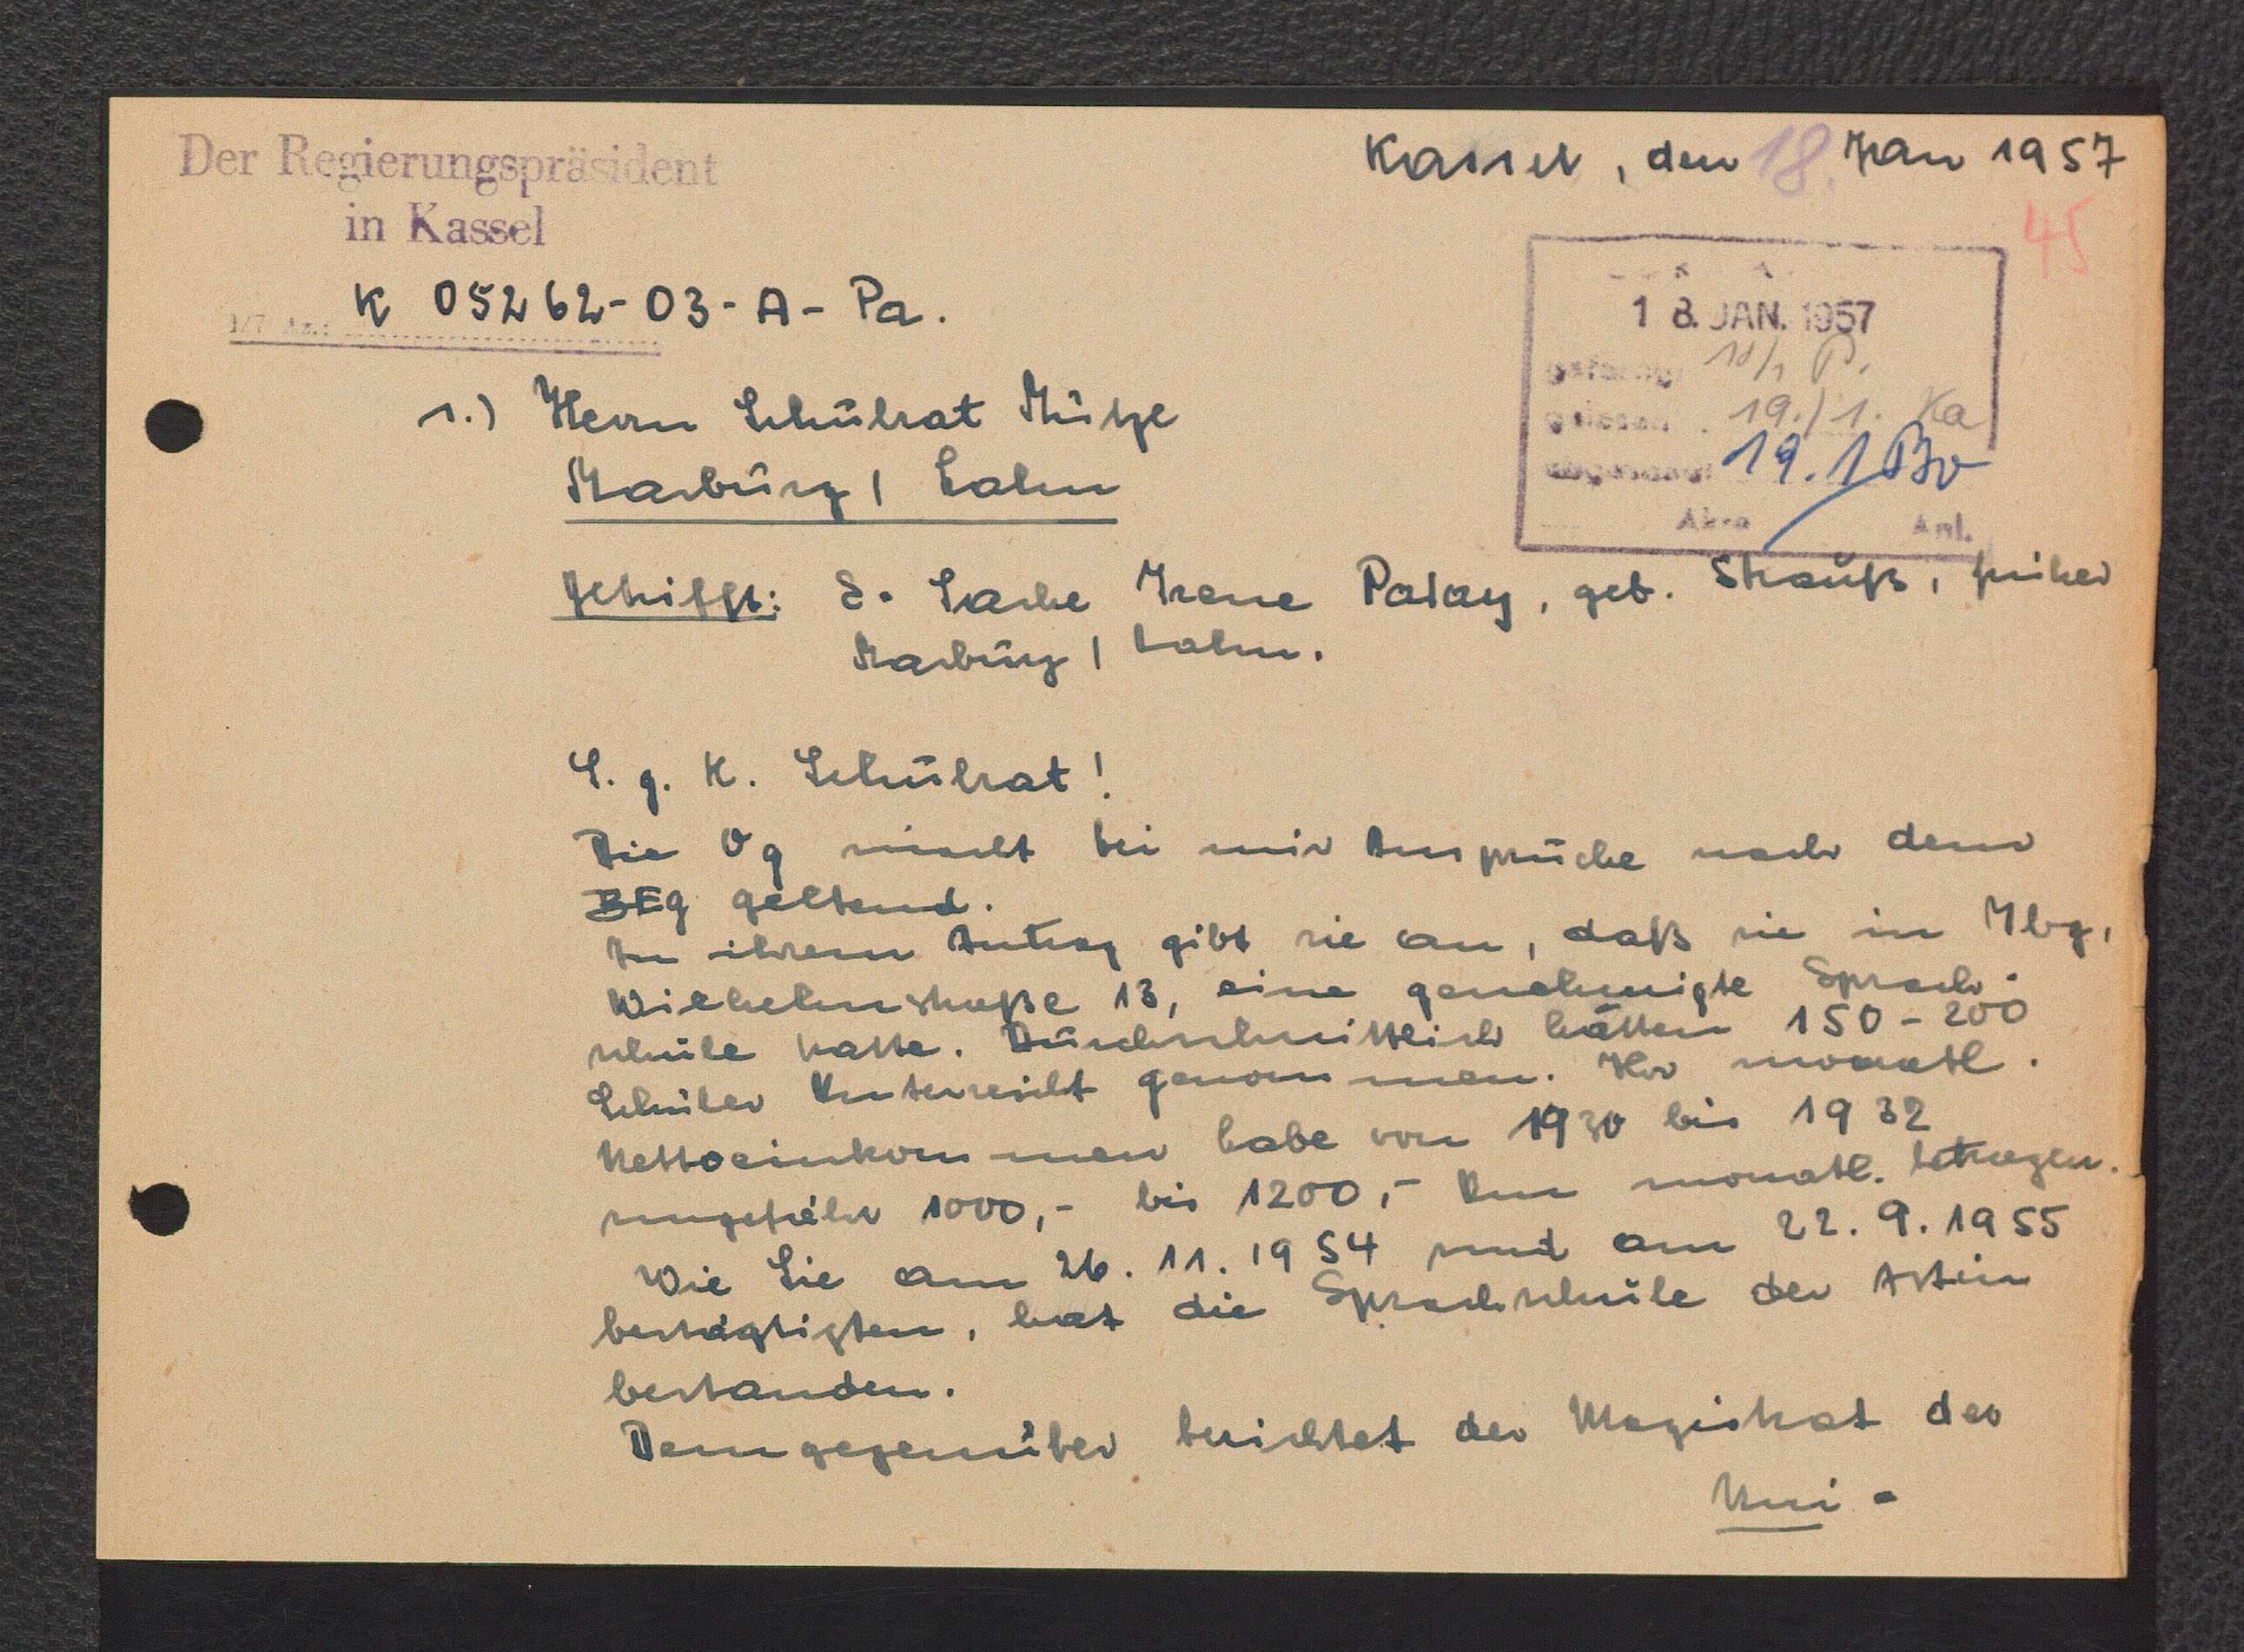 Der Regierungspräsident
in Kassel
I/7 Az.: K 05262-03-A-Pa.
Kassel, den 18. Jan 1957
45
18. JAN. 1957
gefertigt 18/1 P.
gelesen 19./1. Ka
19.1 Bo
Anl.
1.) Herrn Schulrat Mütze
Marburg / Lahn
Betrifft: E.-Sache Irene Palay, geb. Strauß, früher
Marburg / Lahn.
S. g. H. Schulrat!
Die Og macht bei mir Ansprüche nach dem
BEG geltend.
In ihrem Antrag gibt sie an, daß sie in Mbg,
Wilhelmstraße 13, eine genehmigte Sprach-
schule hatte. Durchschnittlich hätten 150-200
Schüler Unterricht genommen. Ihr monatl.
Nettoeinkommen habe von 1930 bis 1932
ungefähr 1000,- bis 1200,- RM monatl. betragen.
Wie Sie am 26.11.1954 und am 22.9.1955
bestätigten, hat die Sprachschule der Astin
bestanden.
Demgegenüber berichtet der Magistrat der
Uni-